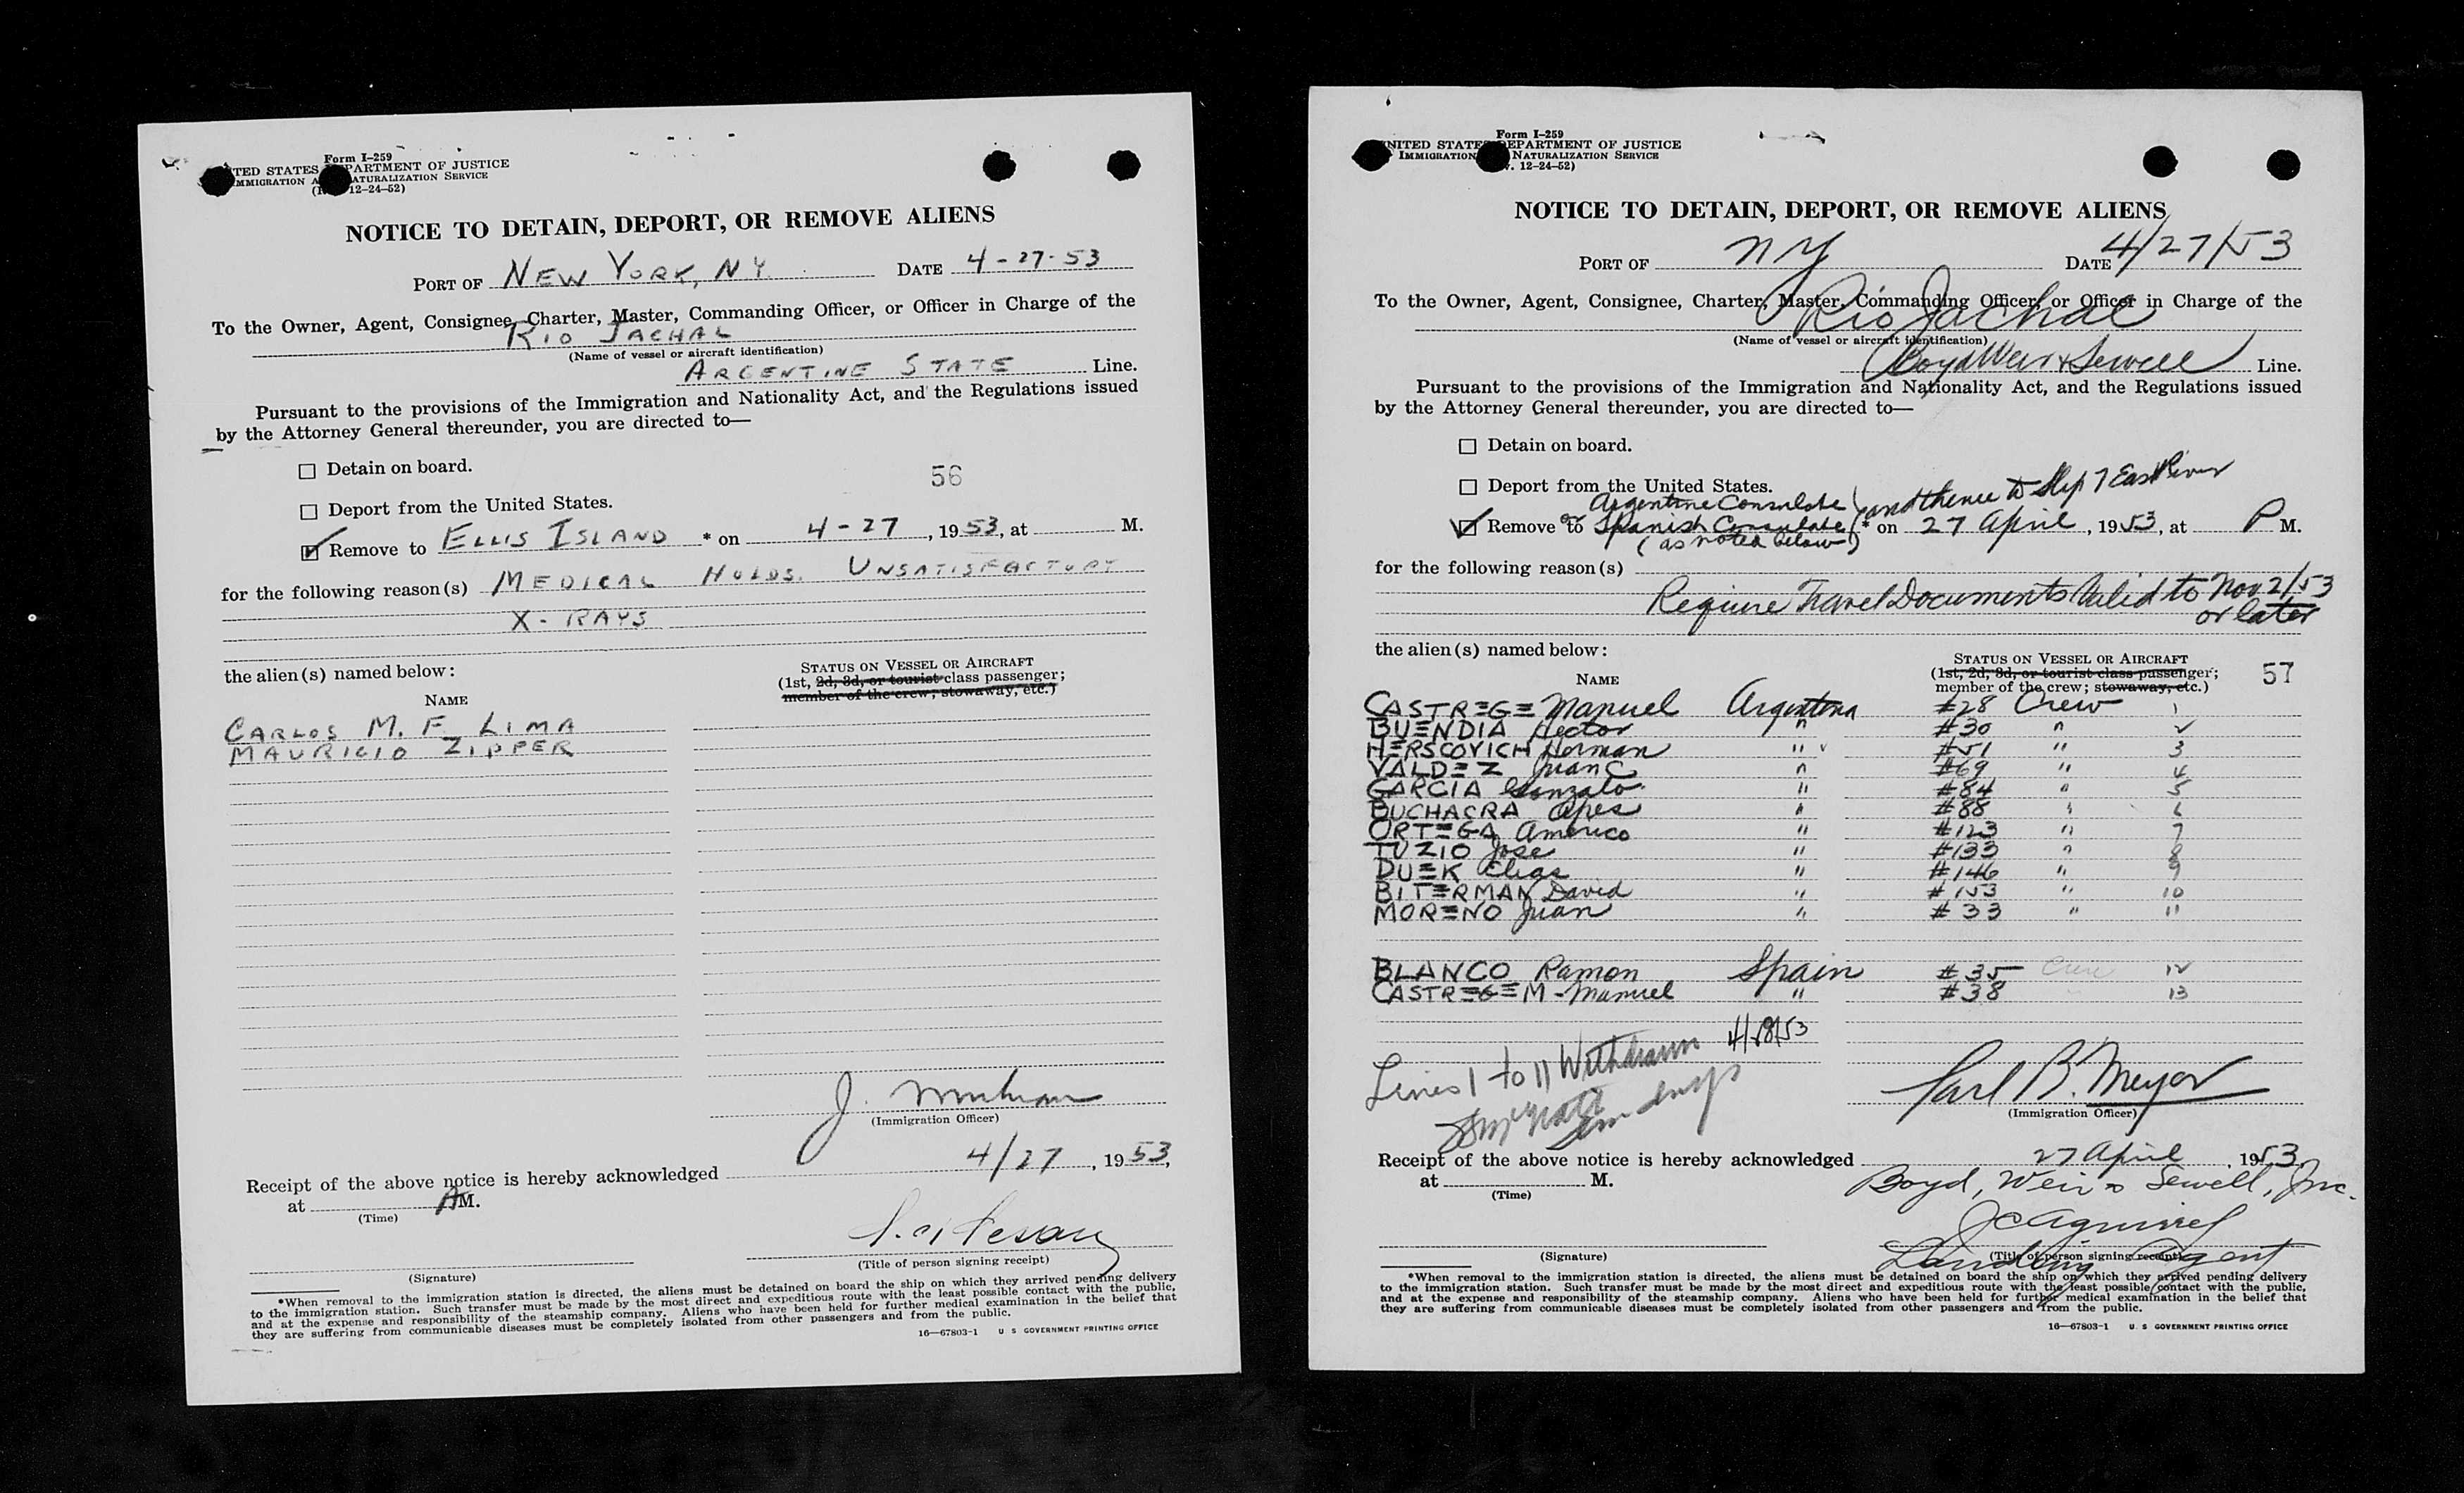 Form I-259
UNITED STATES DEPARTMENT OF JUSTICE
IMMIGRATION NATURALIZATION SERVICE
12-24-52)
NOTICE TO DETAIN, DEPORT, OR REMOVE ALIENS
PORT OF NEW YORK, NY. DATE 4-27-53
To the Owner, Agent, Consignee, Charter, Master, Commanding Officer, or Officer in Charge of the
RIO JACHAL
(Name of vessel or aircraft identification)
ARGENTINE STATE Line.
Pursuant to the provisions of the Immigration and Nationality Act, and the Regulations issued
by the Attorney General thereunder, you are directed to—
☐ Detain on board.
56
☐ Deport from the United States.
☑ Remove to ELLIS ISLAND * on 4-27, 1953, at M.
for the following reason(s) MEDICAL HOLDS. UNSATISFACTORY
X-RAYS
the alien(s) named below:
STATUS ON VESSEL OR AIRCRAFT
(1st, 2d, 3d, or tourist class passenger;
member of the crew; stowaway, etc.)
NAME
CARLOS M. F. LIMA
MAURICIO ZIPPER
J.
(Immigration Officer)
Receipt of the above notice is hereby acknowledged 4/27, 1953,
at AM.
(Time)
(Title of person signing receipt)
(Signature)
*When removal to the immigration station is directed, the aliens must be detained on board the ship on which they arrived pending delivery
to the immigration station. Such transfer must be made by the most direct and expeditious route with the least possible contact with the public,
and at the expense and responsibility of the steamship company. Aliens who have been held for further medical examination in the belief that
they are suffering from communicable diseases must be completely isolated from other passengers and from the public.
16—67803-1 U. S. GOVERNMENT PRINTING OFFICE
Form I-259
UNITED STATES DEPARTMENT OF JUSTICE
IMMIGRATION NATURALIZATION SERVICE
12-24-52)
NOTICE TO DETAIN, DEPORT, OR REMOVE ALIENS
PORT OF NY DATE 4/27/53
To the Owner, Agent, Consignee, Charter, Master, Commanding Officer, or Officer in Charge of the
Rio Jachal
(Name of vessel or aircraft identification)
Boyd Weir & Sewell Line.
Pursuant to the provisions of the Immigration and Nationality Act, and the Regulations issued
by the Attorney General thereunder, you are directed to—
☐ Detain on board.
☐ Deport from the United States.
Argentine Consulate and thence to Slip 7 East River
☑ Remove to or Spanish Consulate * on 27 April, 1953, at P M.
(as noted below)
for the following reason(s)
Require Travel Documents Valid to Nov 2/53
or later
the alien(s) named below:
STATUS ON VESSEL OR AIRCRAFT
(1st, 2d, 3d, or tourist class passenger;
member of the crew; stowaway, etc.)
57
NAME
CASTREGE Manuel Argentina #28 Crew 1
BUENDIA Hector " #30 " 2
HERSCOVICH Herman " #51 " 3
VALDEZ Juan C " #69 " 4
GARCIA Gonzalo " #84 " 5
BUCHACRA Apes " #88 " 6
ORTEGA Americo " #123 " 7
TUZIO Jose " #133 " 8
DUEK Elias " #146 " 9
BITERMAN David " #153 " 10
MORENO Juan " #33 " 11
BLANCO Ramon Spain #35 Crew 12
CASTREGE M - Manuel " #38 13
Lines 1 to 11 Withdrawn 4/28/53
Earl B. Meyer
(Immigration Officer)
Receipt of the above notice is hereby acknowledged 27 April, 1953,
at M.
(Time)
Boyd, Weir & Sewell, Inc.
JC Aguirre
Landing Agent
(Title of person signing receipt)
(Signature)
*When removal to the immigration station is directed, the aliens must be detained on board the ship on which they arrived pending delivery
to the immigration station. Such transfer must be made by the most direct and expeditious route with the least possible contact with the public,
and at the expense and responsibility of the steamship company. Aliens who have been held for further medical examination in the belief that
they are suffering from communicable diseases must be completely isolated from other passengers and from the public.
16—67803-1 U. S. GOVERNMENT PRINTING OFFICE